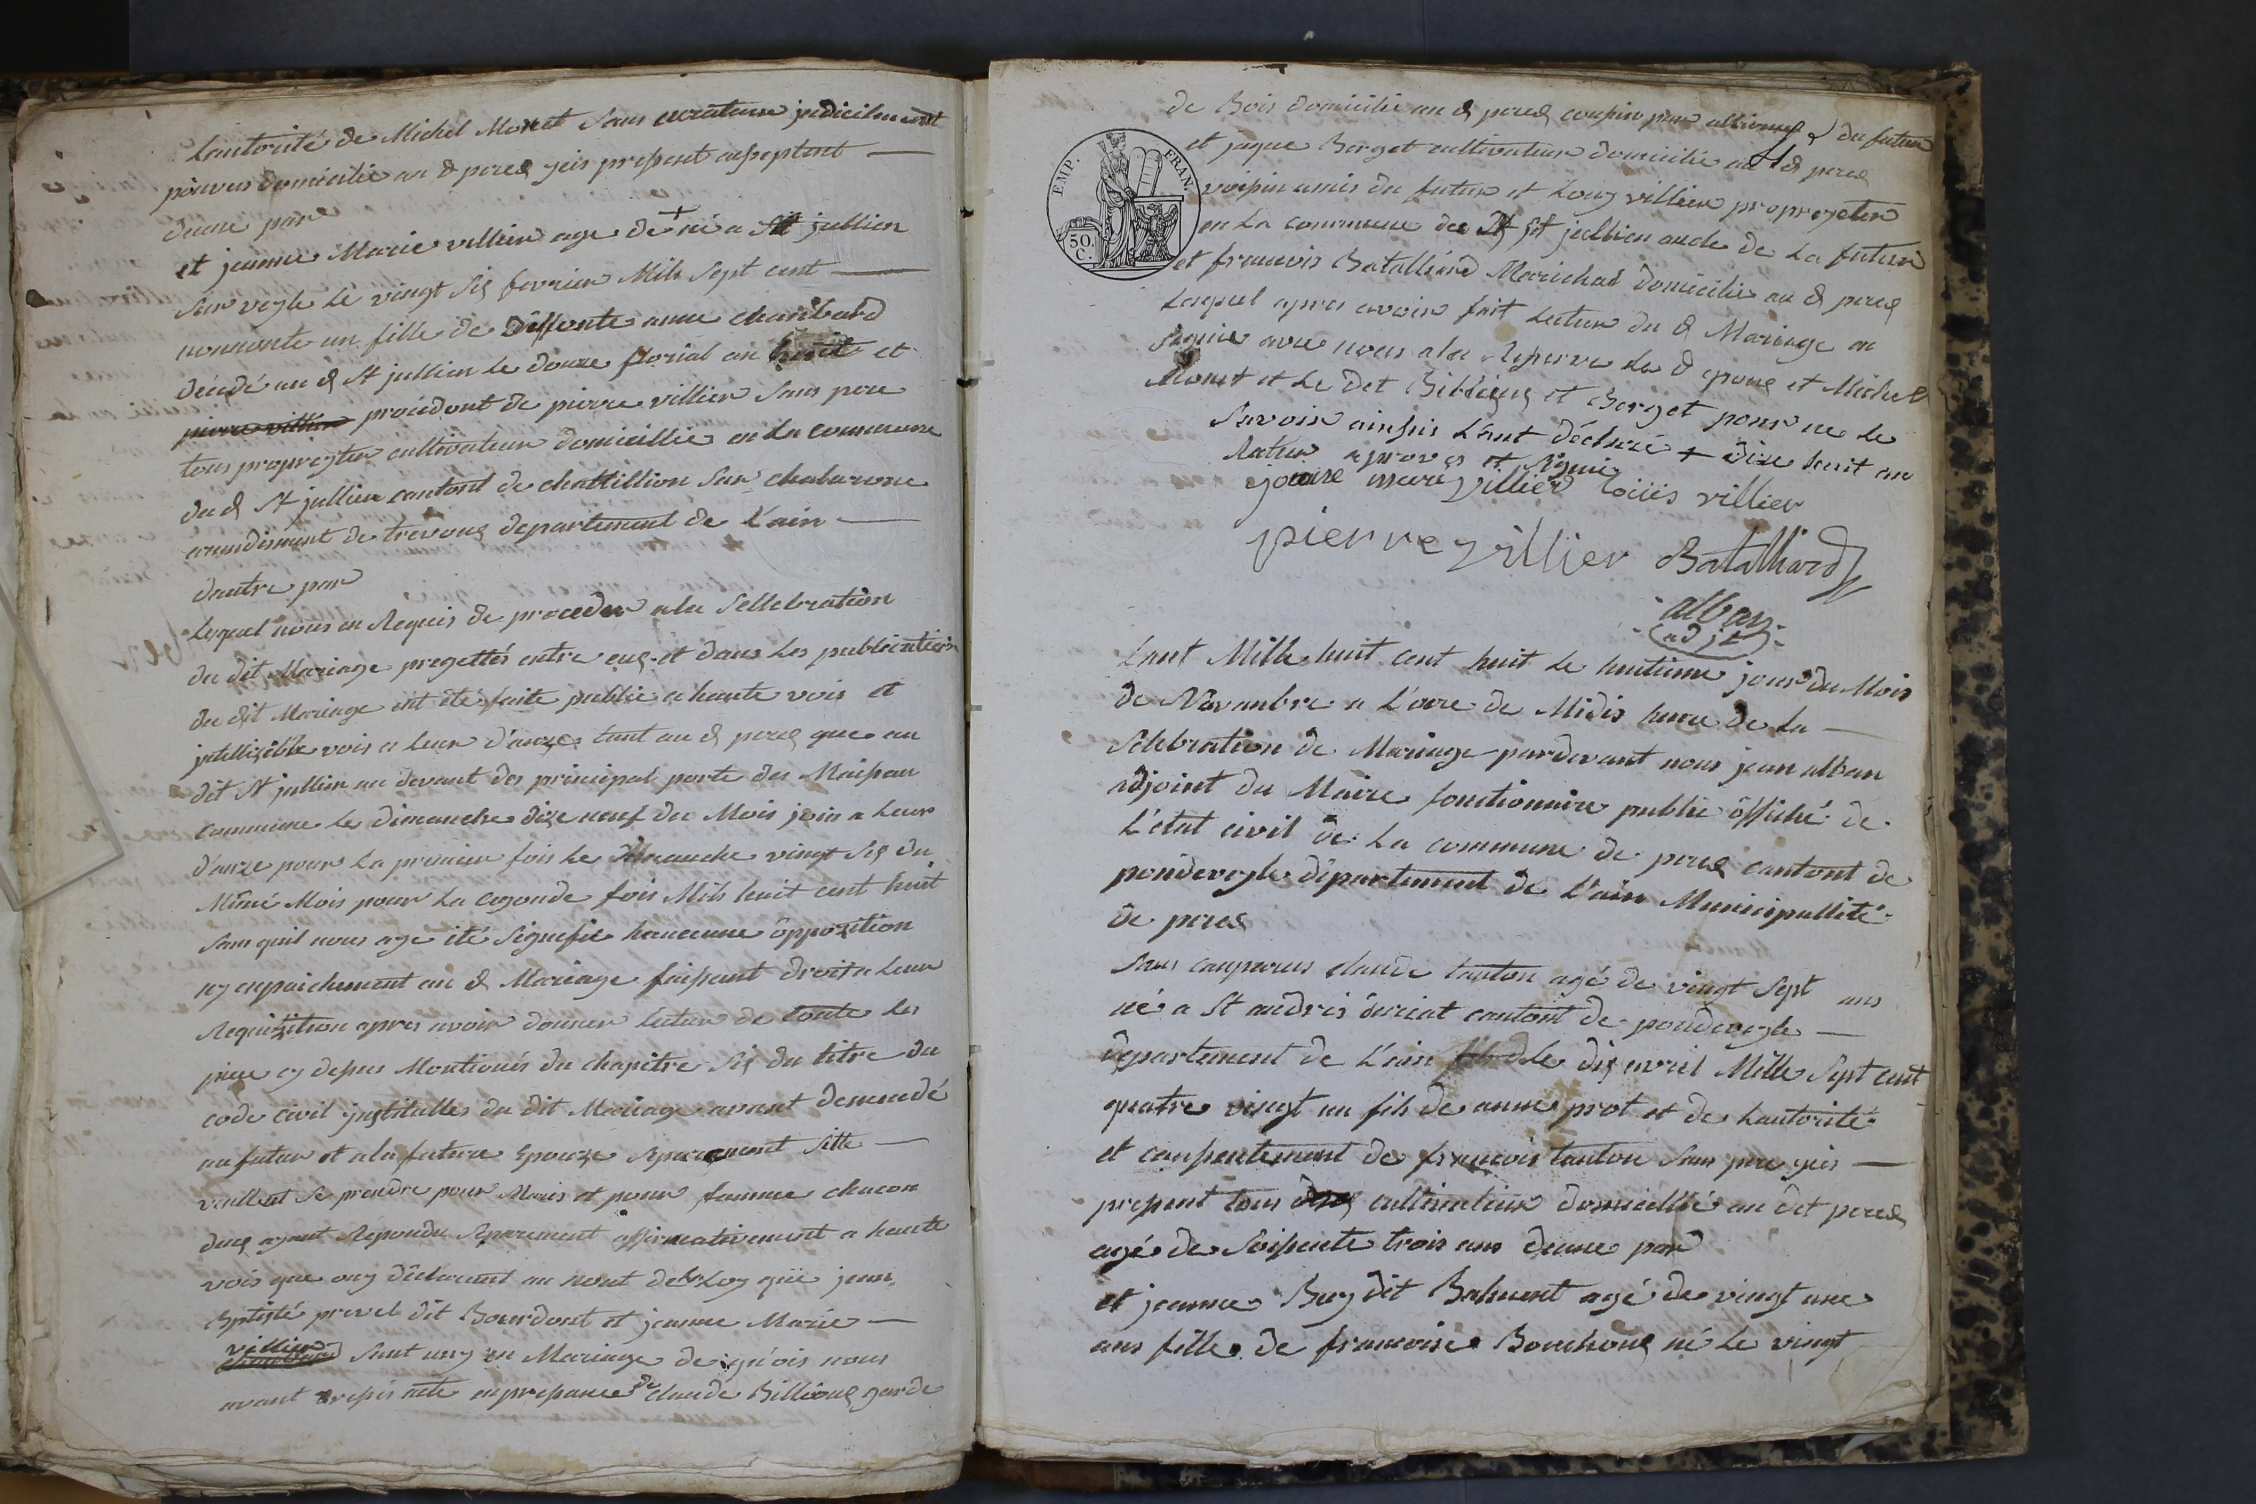 Lautorité de Michel Monet sans curature judicilement
pouvus domicilie au d perex yeis present asseptent
dune par
et jeanne Marie villier age de + né a St jullien
sur veyle le vingt six fevrier Mils sept cent
nonnonte un fille de deffonte anne charibard
décédé au d St jullien le douze florial an huit et
pierre villier procédent de pierre villier sans pere
tous propreyter cultivateur domicillie en la commune
du d St jullien cantont de chattillion sur chalaronne
arundisment de trevoux departement de L'ain
dautre par
Lesquel nous on Requis de proceder ala Sellebration
du dit Mariage progettés entre eux et dans les publication
du dit Mariage ont été faite public a haute vois et
jntellizible vois a leur d'onze tant au d perex que au
dit St jullien au devant des principal porte des Maison
commune le dimanche dize neuf du Mois join a leur
d'onze pour la premier fois le dimanche vingt six du
Même Mois pour la cegonde fois Mils huit cent huit
sans quil nous aye été signefié haucunne öppozition
ny enpaichement au d Mariage faisant droit a leur
Requizition apres avoir donner lectur de toute les
piece cy desus Montionés du chapitre six du titre du
code civil jnstitulles du dit Mariage avont demendé
au futur et ala future Epouze separement sille
veullent se prendre pour Maris et pour famme chacon
deux ayant Répondu separement affirmativement a haute
vois que ouy declarant au nont de la Loy que jean
Bptisté prevel dit Bourdont et jeanne Marie
villier
sont uny en Mariage de quois nous
avont dressés acte en presance de claude Billioux garde
de Bois domicilié au d perex cousin par allience du futur
et jaque Borget cultivateur domicilié au d perex
voisin amis du futur et Louy villier propreyeter
en la commune de St jullien oncle de la future
et francois Batalliard Marichal domicilie au d perex
Lequel apres avoir fait lectur du d Mariage on
signie avec nous a la Reserve la d epoux et Michel
Monet et le det Billioux et Borget pour ne le
Savoir ainsis L'ont déclaré + dize huit an
Ratur aprovés et signié
joaine marie villier loüis villier
pierre villier Batalliard
alban
adjt
EMP. FRAN.
50. C.
Lant Mille huit cent huit le huitieme jour du Mois
de Novanbre a L'oure de Midis heure de la
Selebration de Mariage pardevant nous jean alban
adjoint du Maire fonctionnaire public öffisié de
L'etat civil de la commune de perex cantont de
pondeveyle département de L'ain Municipallité
de perex
Sous conparus claude tanton agé de vingt sept ans
né a St andrés duriat cantont de pondeveyle
departement de L'ain le dix avril Mille sept cent
quatre vingt un fils de anne prot et de Lautorité
et consentement de francois tanton sans pere yeis
present tous deux cultivateur domicillié au det perex
agé de soisente trois ans dune par
et jeanne Buy dit Balvent agé de vingt une
ans fille de francoise Bouchoux né le vingt